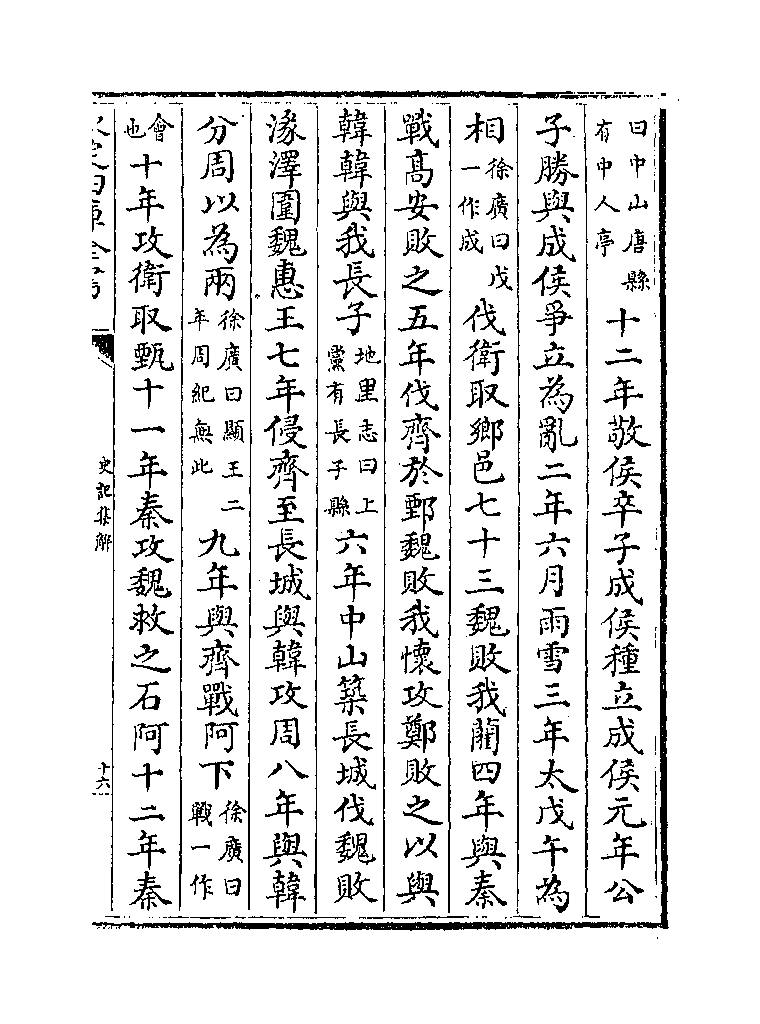 曰中山唐縣有中人亭十二年敬侯卒子成侯種立成侯元年公
子勝與成侯爭立為亂二年六月雨雪三年太戊午為
相徐廣曰戊一作成伐衛取鄉邑七十三魏敗我藺四年與秦
戰髙安敗之五年伐齊於鄄魏敗我懷攻鄭敗之以與
韓韓與我長子地里志曰上黨有長子縣六年中山築長城伐魏敗
湪澤圍魏惠王七年侵齊至長城與韓攻周八年與韓
分周以為兩徐廣曰顯王二年周紀無此九年與齊戰阿下徐廣曰戰一作
會也十年攻衛取甄十一年秦攻魏救之石阿十二年秦
史記集解
十六